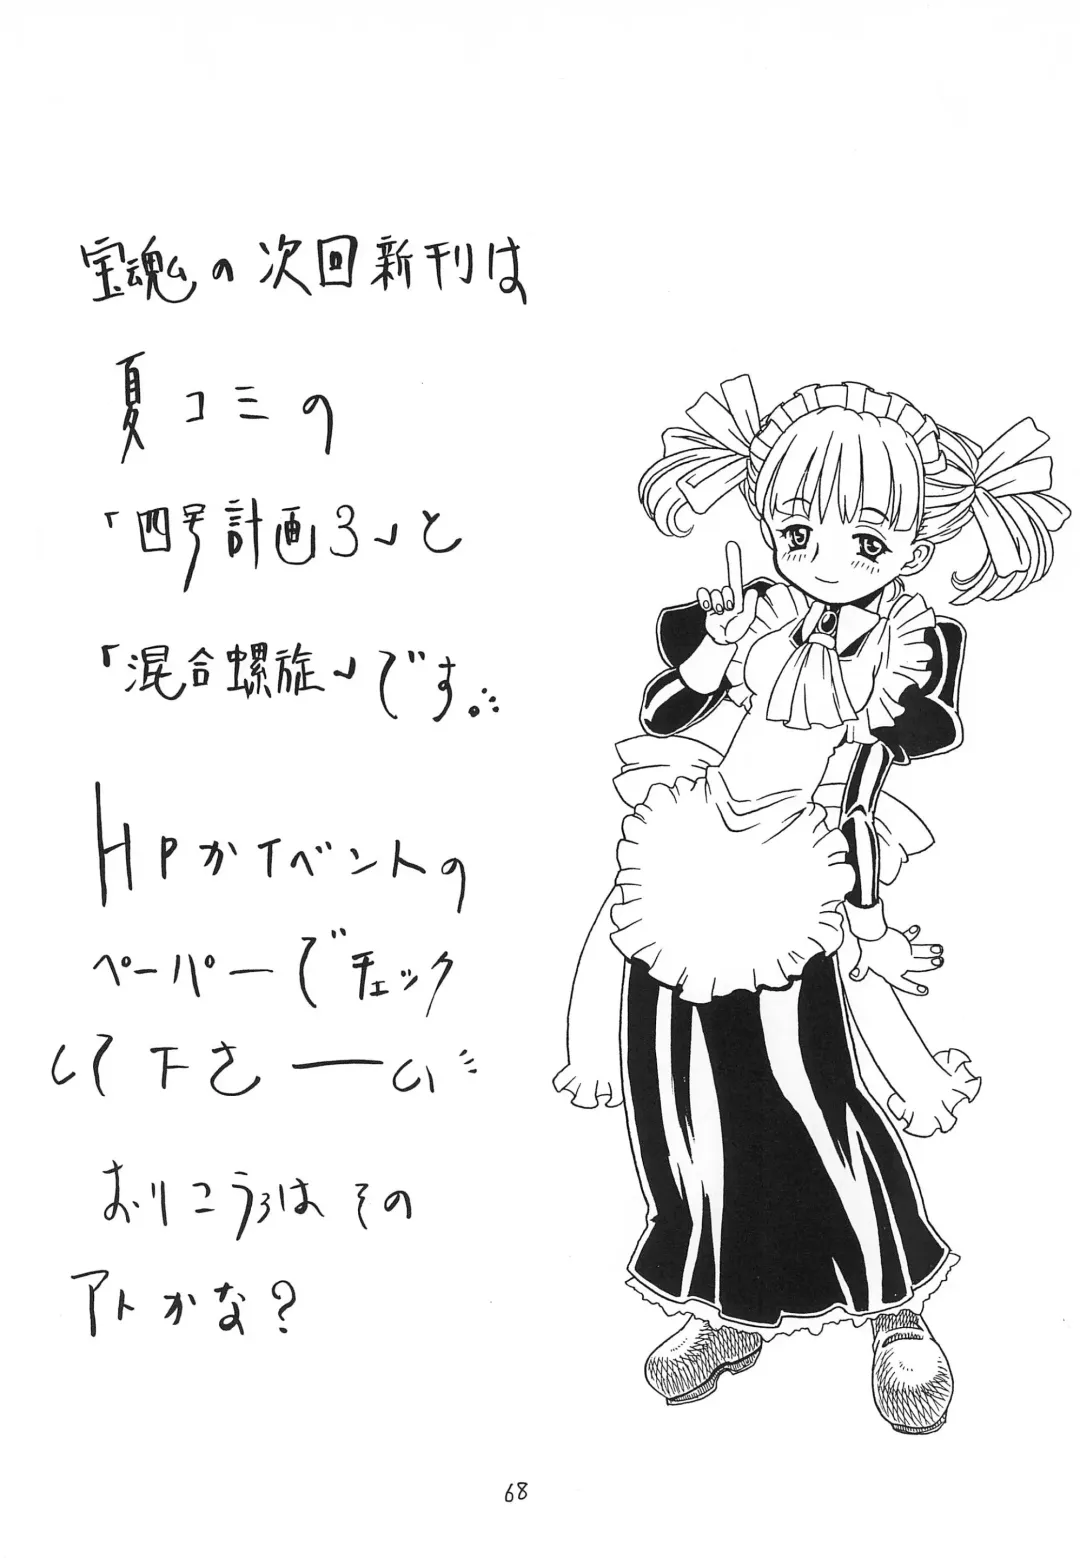 宝魂の次回新刊は
夏コミの
「四号計画3」と
「混合螺旋」です。
HPかイベントの
ペーパーでチェック
して下さーーい
おりこうろはその
アトかな?
68